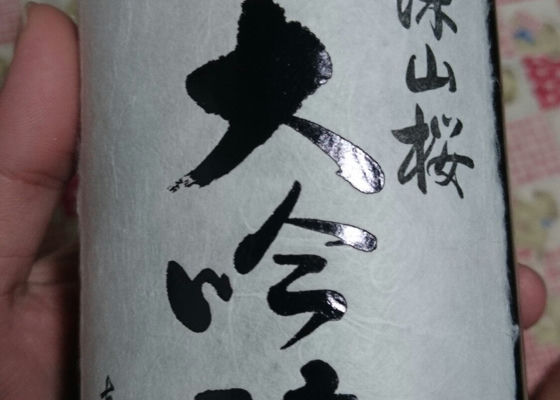 深山桜
大吟